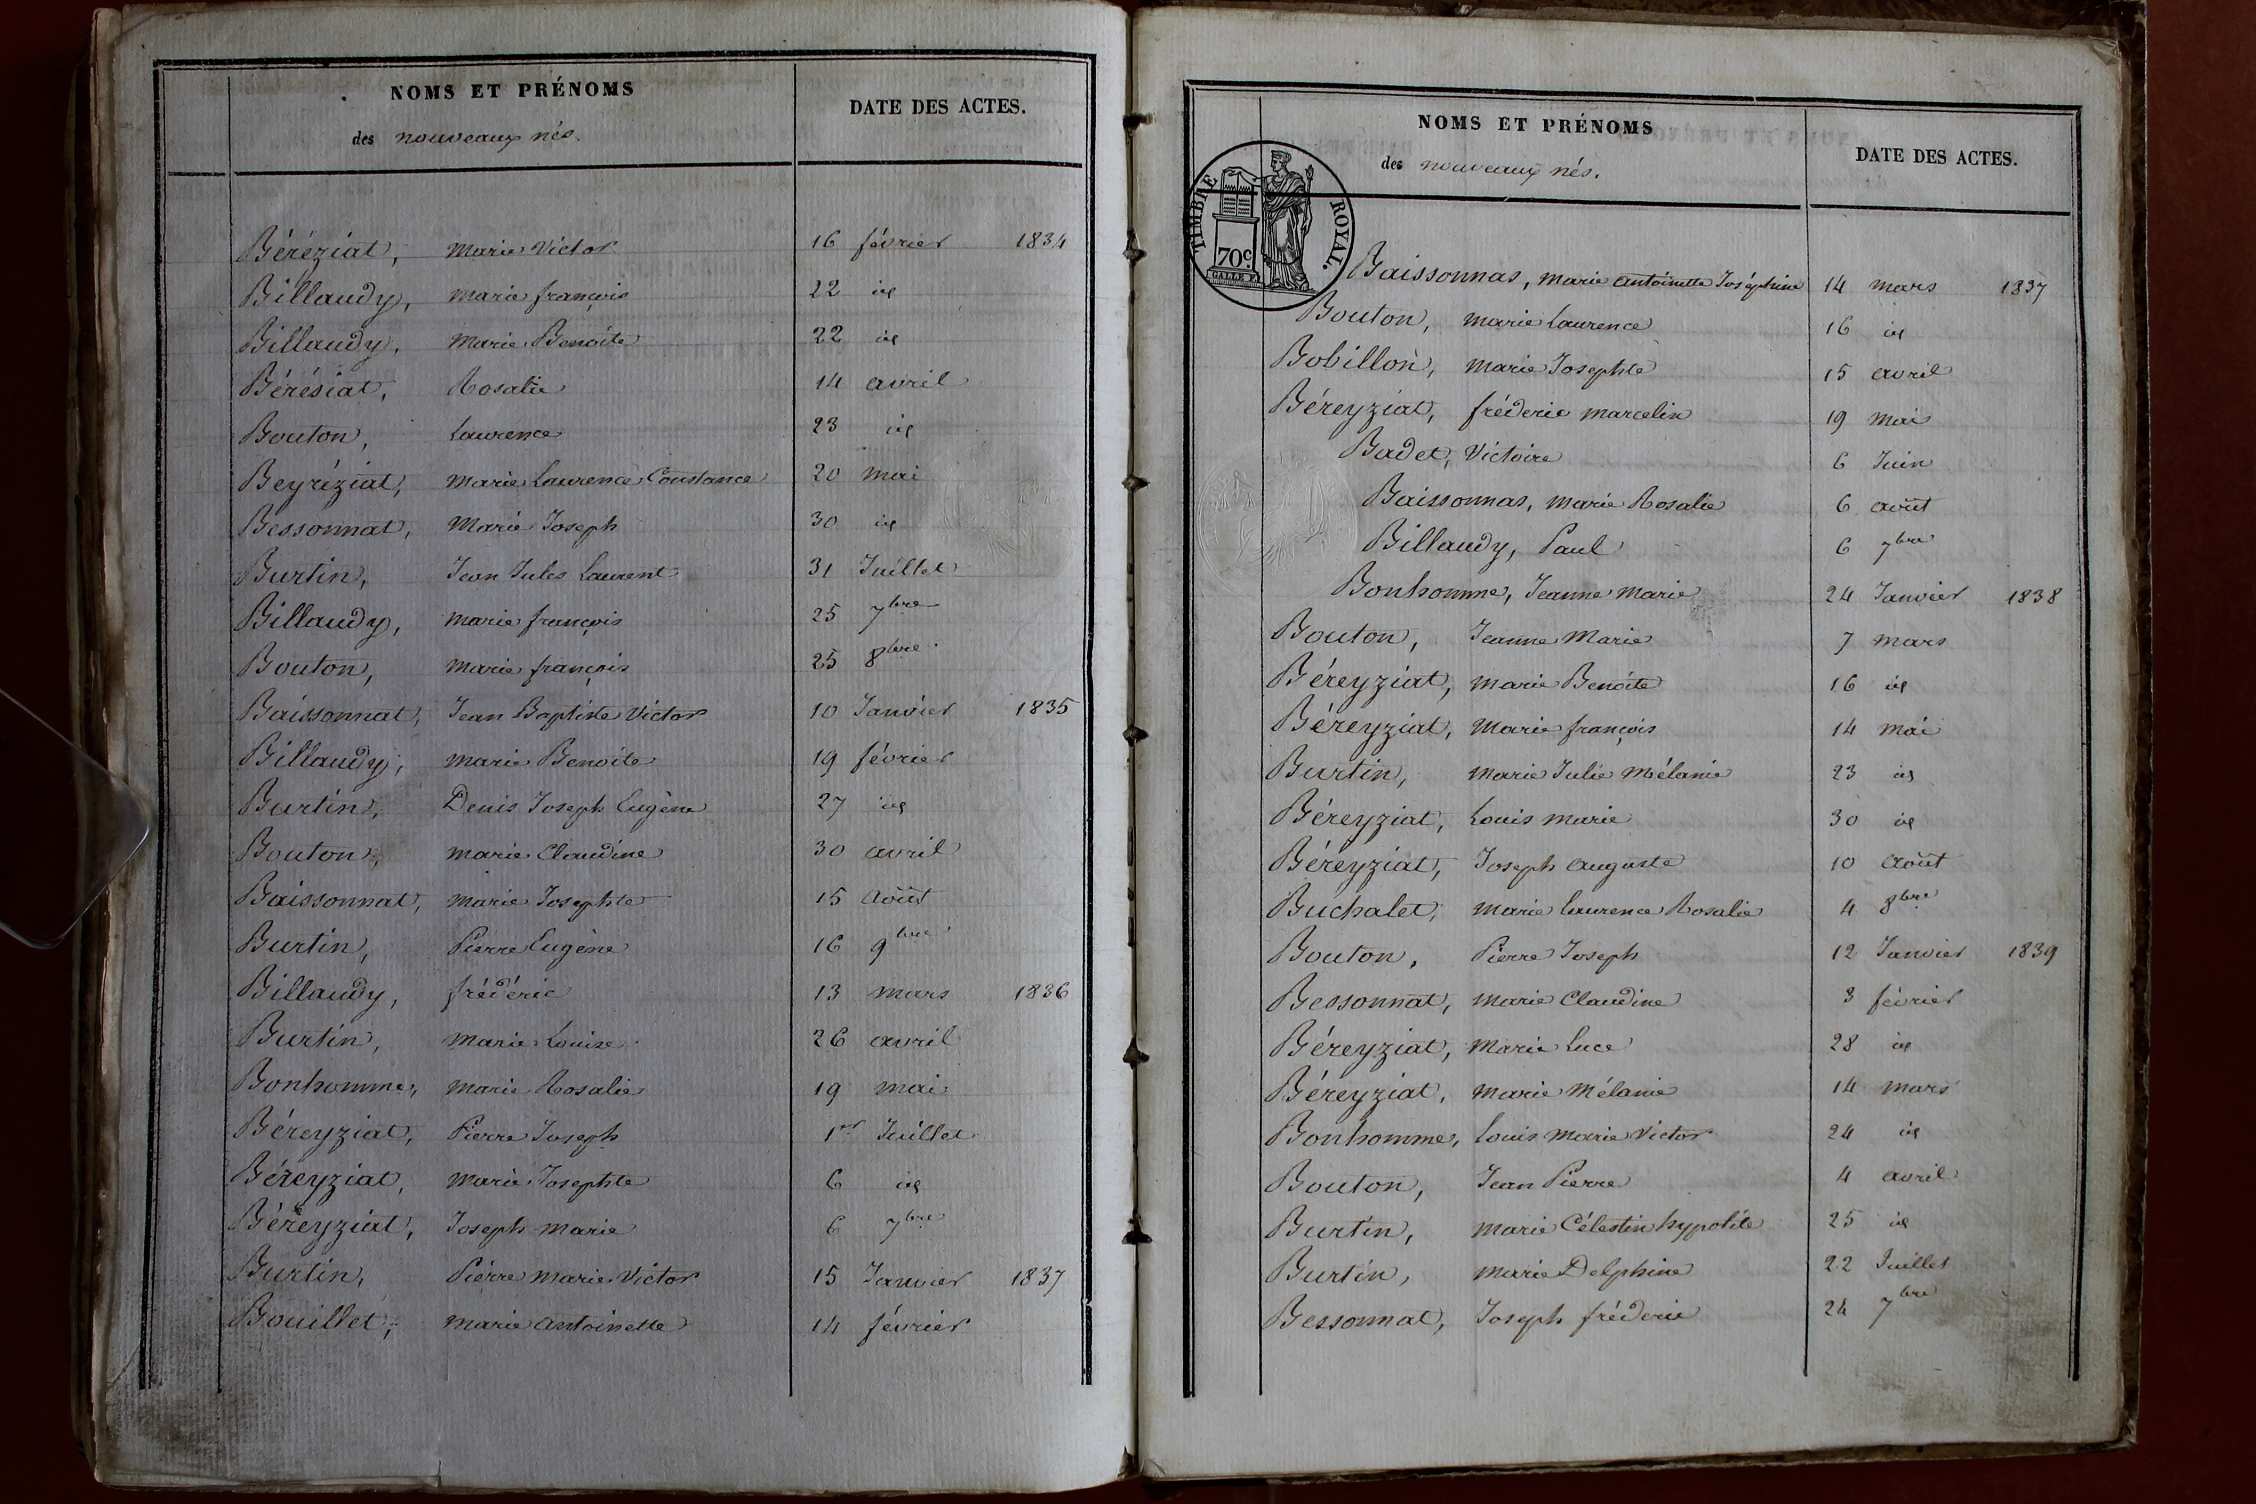 NOMS ET PRÉNOMS
des nouveaux nés.
DATE DES ACTES.
Béréziat, Marie Victor 16 février 1834
Billaudy, marie françois 22 id
Billaudy, Marie Benoite 22 id
Bérésiat, Rosalie 14 avril
Bouton, Laurence 23 id
Beyréziat, Marie Laurence Constance 20 mai
Bessonnat, Marie Joseph 30 id
Burtin, Jean Jules Laurent 31 Juillet
Billaudy, marie françois 25 7bre
Bouton, Marie françois 25 8bre.
Baissonnat, Jean Baptiste Victor 10 Janvier 1835
Billaudy, marie Benoite 19 février
Burtin, Denis Joseph Eugène 27 id
Bouton, marie Claudine 30 avril
Baissonnat, marie Josephte 15 Août
Burtin, Pierre Eugène 16 9bre
Billaudy, frédéric 13 mars 1836
Burtin, Marie Louise 26 avril
Bonhomme, marie Rosalie 19 mai
Béreyziat, Pierre Joseph 1er Juillet
Béreyziat, Marie Josephte 6 id
Béreyziat, Joseph marie 6 7bre
Burtin, Pierre marie Victor 15 Janvier 1837
Bouillet, Marie antoinette 14 février
NOMS ET PRÉNOMS
des nouveaux nés.
DATE DES ACTES.
TIMBRE ROYAL.
70c.
Baissonnas, Marie antoinette Joséphine 14 mars 1837
Bouton, marie Laurence 16 id
Bobillon, Marie Josephte 15 avril
Béreyziat, fréderic marcelin 19 Mai
Badet, Victoire 6 Juin
Baissonnas, marie Rosalie 6 août
Billaudy, Paul 6 7bre
Bonhomme, Jeanne Marie 24 Janvier 1838
Bouton, Jeanne Marie 7 mars
Béreyziat, Marie Benoite 16 id
Béreyziat, Marie françois 14 mai
Burtin, Marie Julie Mélanie 23 id
Béreyziat, Louis marie 30 id
Béreyziat, Joseph auguste 10 Août
Buchalet, Marie Laurence Rosalie 4 8bre
Bouton, Pierre Joseph 12 Janvier 1839
Bessonnat, Marie Claudine 3 février
Béreyziat, Marie Luce 28 id
Béreyziat, Marie Mélanie 14 mars
Bonhomme, Louis Marie Victor 24 id
Bouton, Jean Pierre 4 avril
Burtin, Marie Célestin hypolite 25 id
Burtin, Marie Delphine 22 Juillet
Bessonnat, Joseph fréderic 24 7bre